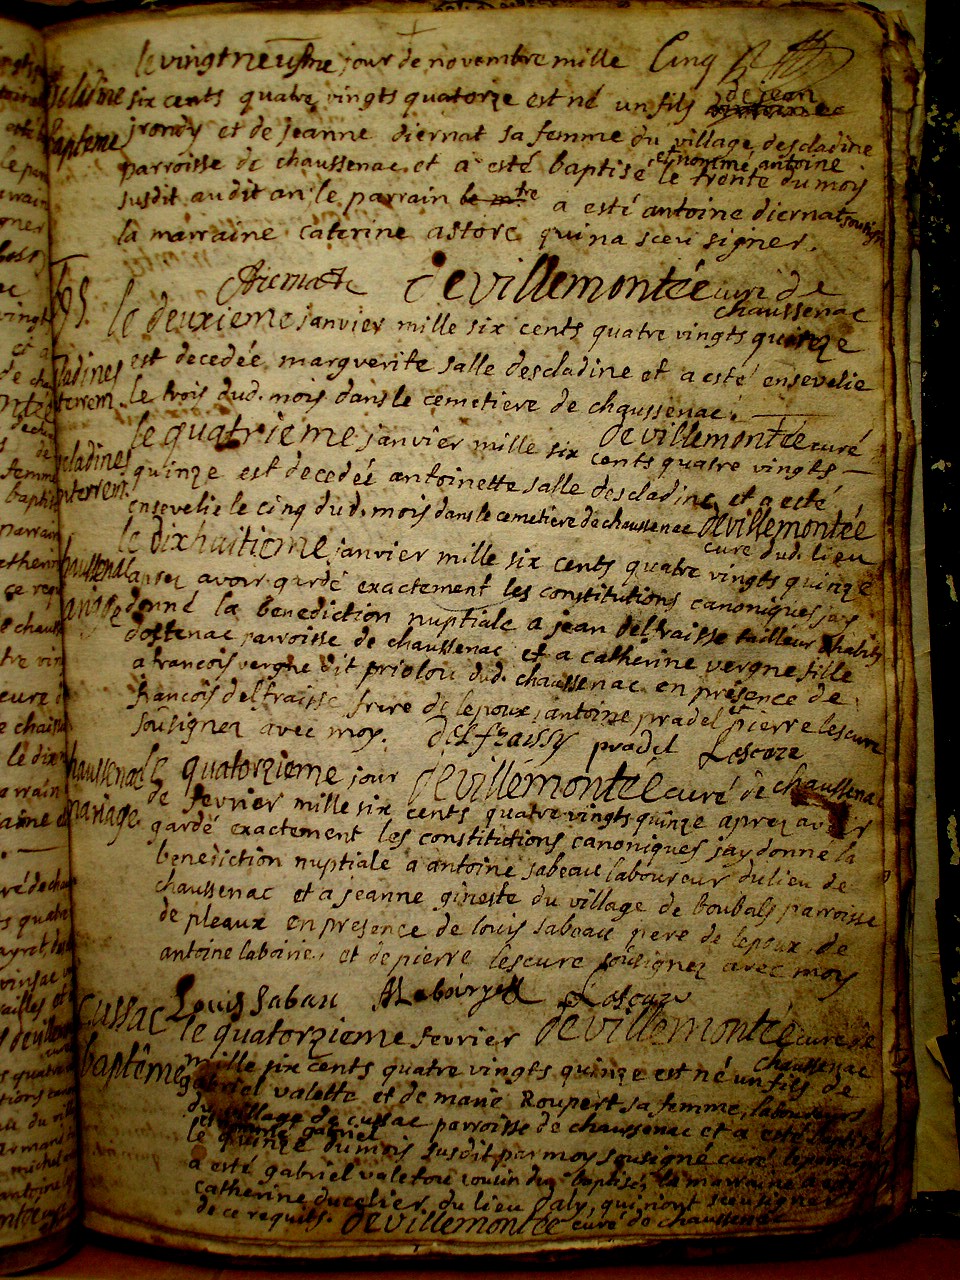 le vingtneufme jour de novembre mille Cinq
descladine six cents quatre vingts quatorze est né un fils de jean
bapteme jrondy et de jeanne diernat sa femme du village descladine
parroisse de chaussenac, et a esté baptisé et nommé antoine le trente du mois
susdit audit an le parrain le mtre a esté antoine diernat sousigné
la marraine caterine astorc qui na sceu signer.
diernat devillemontée curé de
chaussenac
95. le deuxieme janvier mille six cents quatre vingts quinze
cladines est decedée marguerite salle descladine et a esté ensevelie
enterrem. le trois dud. mois dans le cemetiere de chaussenac.
devillemontée curé
le quatrieme janvier mille six cents quatre vingts
escladines quinze est decedée antoinette salle descladine et a esté
enterrem. ensevelie le cinq dud. mois dans le cemetiere de chaussenac devillemontée
curé dud. lieu
le dixhuitieme janvier mille six cents quatre vingts quinze
chaussenac aprez avoir gardé exactement les constitutions canoniques jay
mariage donné la benediction nuptiale a jean delfraisse tailleur habit
dostenac parroisse de chaussenac et a catherine vergne fille
a francois vergne dit priolou dud. chaussenac en présence de
francois delfraisse frere de lepoux, antoine pradel et pierre lescure
sousignez avec moy. delfraissy pradel Lescure
devillemontée curé de chaussenac
chaussenac le quatorzieme jour
mariage de fevrier mille six cents quatre vingts quinze aprez avoir
gardé exactement les constitutions canoniques jay donne la
benediction nuptiale a antoine sabeau laboureur du lieu de
chaussenac et a jeanne gineste du village de boubals parroisse
de pleaux en presence de louis sabeau pere de lepoux, de
antoine laboirie, et de pierre lescure sousignez avec moy
Louis Sabau Lescure
devillemontée curé de
chaussenac
Cussac le quatorzieme fevrier
baptême mille six cents quatre vingts quinze est né un fils de
gabriel valette et de marie Roupert sa femme, laboureurs
du village de cussac parroisse de chaussenac et a esté baptisé
et nommé gabriel
le quinze du mois susdit par moy sousigné curé le parrain
a esté gabriel valette cousin du baptisé, la marraine a esté
catherine ducelier du lieu daly, qui nont sceu signer
de ce requis. devillemontée curé de chaussenac